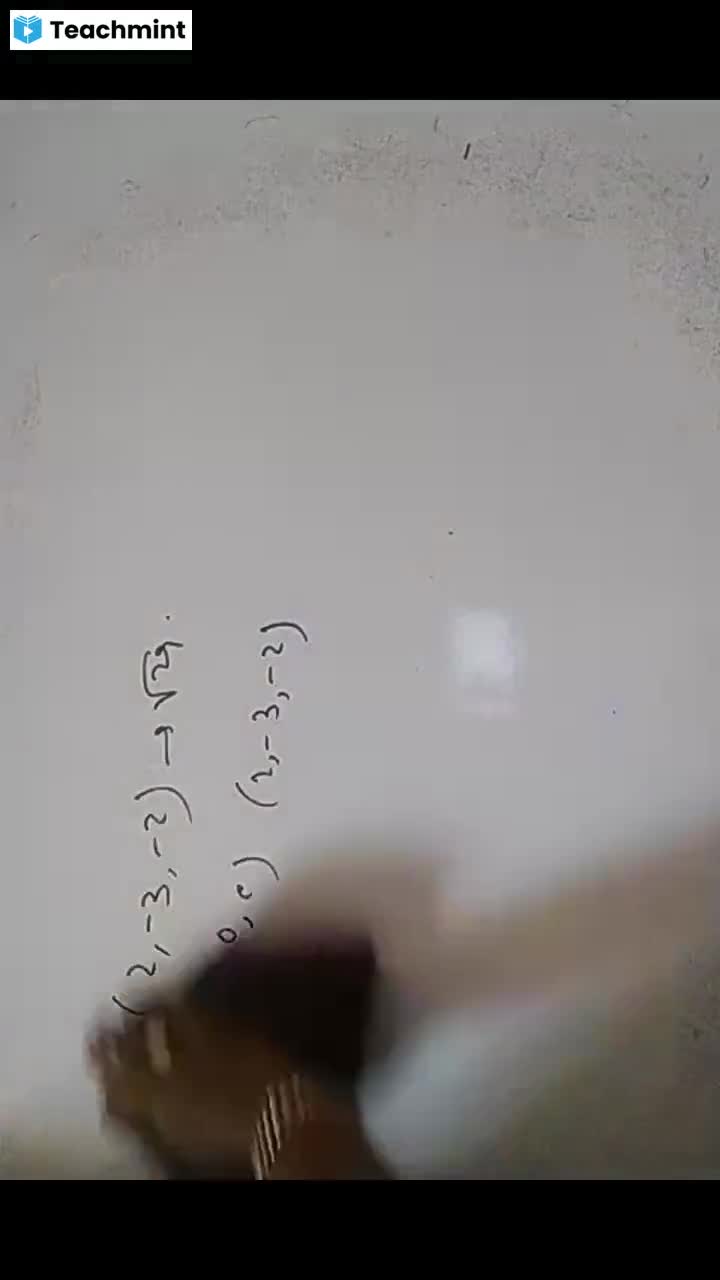 Teachmint
(2,-3,-2) → √29.
0, c) (2,-3,-2)